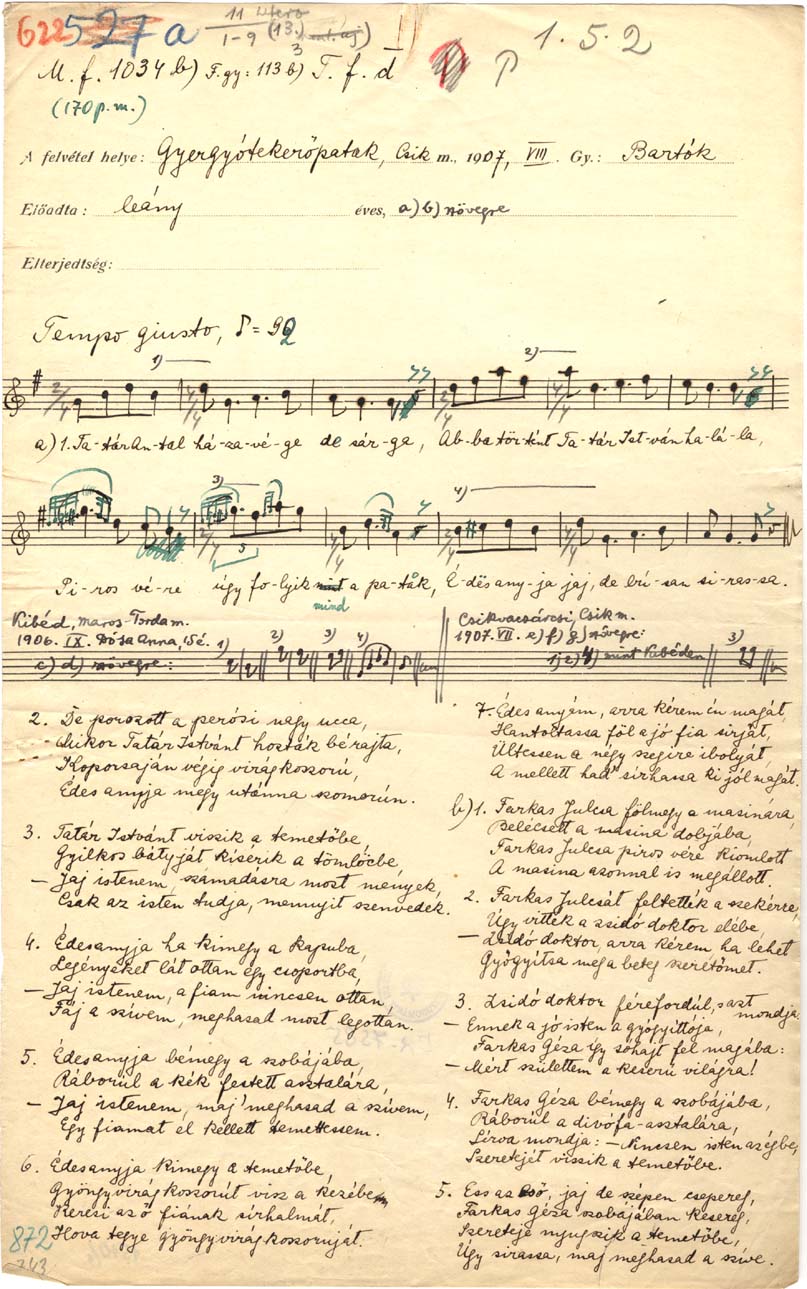 622 527 a 11 1-9 (13.) 3 1. 5. 2
M. f. 1034 b) F. gy: 113 b) T. f. d P
(170 p. m.)
A felvétel helye: Gyergyótekerőpatak, Csik m., 1907, VIII. Gy.: Bartók
Előadta: leány éves, a) b) szövegre
Elterjedtség:
Tempo giusto, = 92
1) 2)
2/4 4/4 2/4 4/4
a) 1. Ta-tár An-tal há-za-vé-ge de sár-ga, Ab-ba tör-tént Ta-tár Ist-ván ha-lá-la,
3) 4)
2/4 5 4/4 2/4 4/4
Pi-ros vé-re úgy fo-lyik mint a pa-ták, É-dës any-ja jaj, de bú-san si-ras-sa.
mind
Kibéd, Maros-Torda m.
1906. IX. Dósa Anna,
c) d) szövegre: 1) 2) 3) 4)
Csikvacsárcsi, Csik m.
1907. VII. e) f) g) szövegre:
1) 2) 4) mint Kibéden 3)
2. De porozott a perősi nagy ucca,
Mikor Tatár Istvánt hosták bé rajta,
Koporsaján végig virágkoszorú,
Édes anyja megy utánna szomorún.
3. Tatár Istvánt vissik a temetőbe
Gyilkos bátyját kisérik a tömlöcbe,
— Jaj istenem, számadásra most mënyek,
Csak az isten tudja, mennyit szenvedek.
4. Édesanyja ha kimegy a kapuba,
Legényeket lát ottan egy csoportba,
— Jaj istenem, a fiam nincsen ottan,
Fáj a szívem, meghasad most legottan.
5. Édesanyja bémegy a szobájába,
Ráborúl a kék festett asztalára,
— Jaj istenem, maj' meghasad a szívem,
Egy fiamat el këllett temettessem.
6. Édesanyja kimegy a temetőbe
Gyöngyvirágkoszorút visz a kezében
Keresi az ő fiának sírhalmát,
Hova tegye gyöngyvirágkoszoruját.
872
743
7. Édes anyém, arra kérem én magát,
Hantoltassa föl a jó fia sirját,
Ültessen a négy szegire ibolyát,
A mellett had' sirhassa ki jól magát.
b) 1. Farkas Julcsa fölmegy a masinára,
Belécsett a masina dobjába,
Farkas Julcsa piros vére kiomlott
A masina azonnal is megállott.
2. Farkas Julcsát feltették a szekérre,
Úgy vitték a zsidó doktor elébe,
— Zsidó doktor, arra kérem ha lehet
Gyógyítsa meg a beteg szeretőmet.
3. Zsidó doktor férefordúl, s azt mondja:
— Ennek a jó isten a gyógyittója,
Farkas Géza így sóhajt fel magába:
— Mért születtem a keserű világra!
4. Farkas Géza bémegy a szobájába,
Ráborúl a diófa-asztalára,
Sírva mondja: — Nincsen isten az égbe,
Szeretejét vissik a temetőbe.
5. Ess az eső, jaj de szépen csepereg,
Farkas Géza szobájában kesereg,
Szereteje nyugszik a temetőbe,
Úgy sirassa, maj meghasad a szíve.